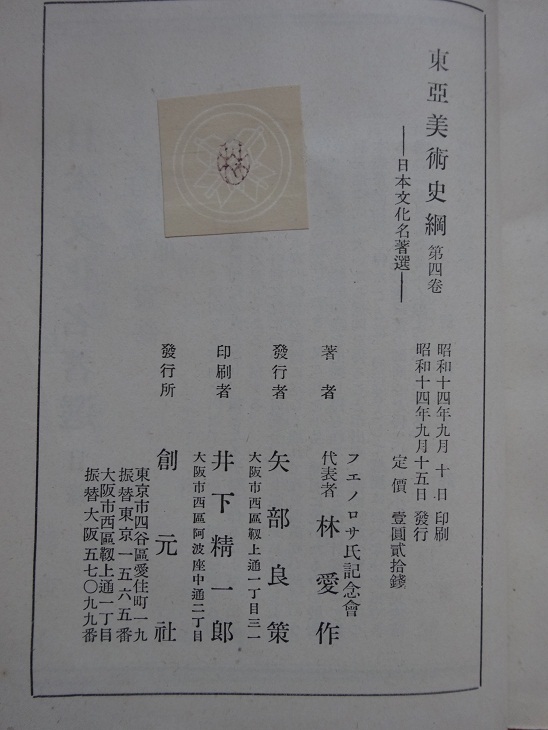 東亞美術史綱 第四卷
――日本文化名著選――
昭和十四年九月 十 日 印刷
昭和十四年九月十五日 發行
定價 壹圓貳拾錢
著者 フエノロサ氏記念會
代表者 林愛作
發行者 矢部良策
大阪市西區靱上通一丁目三一
印刷者 井下精一郎
大阪市西區阿波座中通二丁目
發行所 創元社
東京市四谷區愛住町一九
振替東京一五六五番
大阪市西區靱上通一丁目
振替大阪五七〇九九番